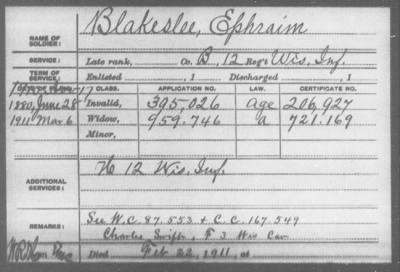 NAME OF SOLDIER: Blakeslee, Ephraim
SERVICE: Late rank, Co. B, 12 Reg't Wis. Inf.
TERM OF SERVICE: Enlisted , 1 Discharged , 1
CLASS. APPLICATION NO. LAW. CERTIFICATE NO.
1880, June 28 Invalid, 395.026 Age 206,927
1911 Mar 6 Widow, 959.746 a 721.169
Minor,
ADDITIONAL SERVICES: H 12 Wis. Inf.
REMARKS: See W.C. 87.553 + C.C. 167.549
Charles Swift, F 3 Wis Cav
Died Feb 22, 1911, at